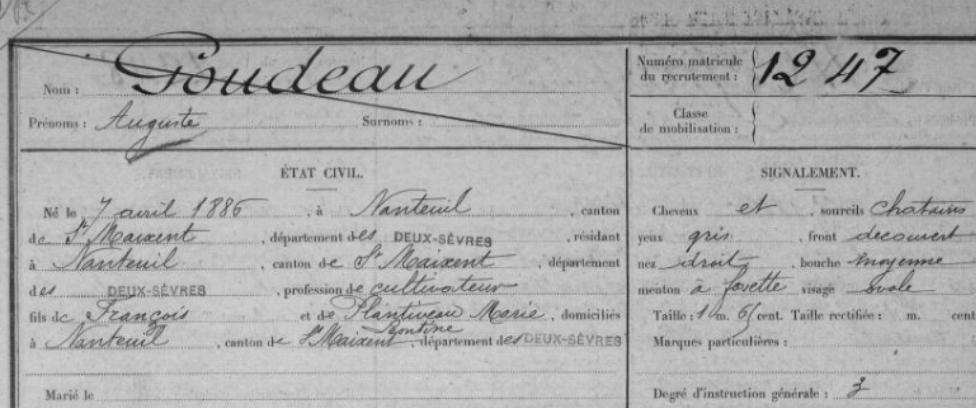 Nom : Poudeau
Numéro matricule du recrutement : 1247
Prénoms : Auguste Surnoms :
Classe de mobilisation :
ÉTAT CIVIL.
Né le 7 avril 1886, à Nanteuil, canton
de St Maixent, département des DEUX-SÈVRES, résidant
à Nanteuil, canton de St Maixent, département
des DEUX-SÈVRES, profession de cultivateur
fils de François et de Plantiveau Marie, domiciliés
à Nanteuil, canton de St Maixent, département des DEUX-SÈVRES
Marié le
SIGNALEMENT.
Cheveux et sourcils chatains
yeux gris, front decouvert
nez droit, bouche moyenne
menton à fovette visage ovale
Taille : 1 m. 6 cent. Taille rectifiée : m. cent
Marques particulières :
Degré d'instruction générale : 3